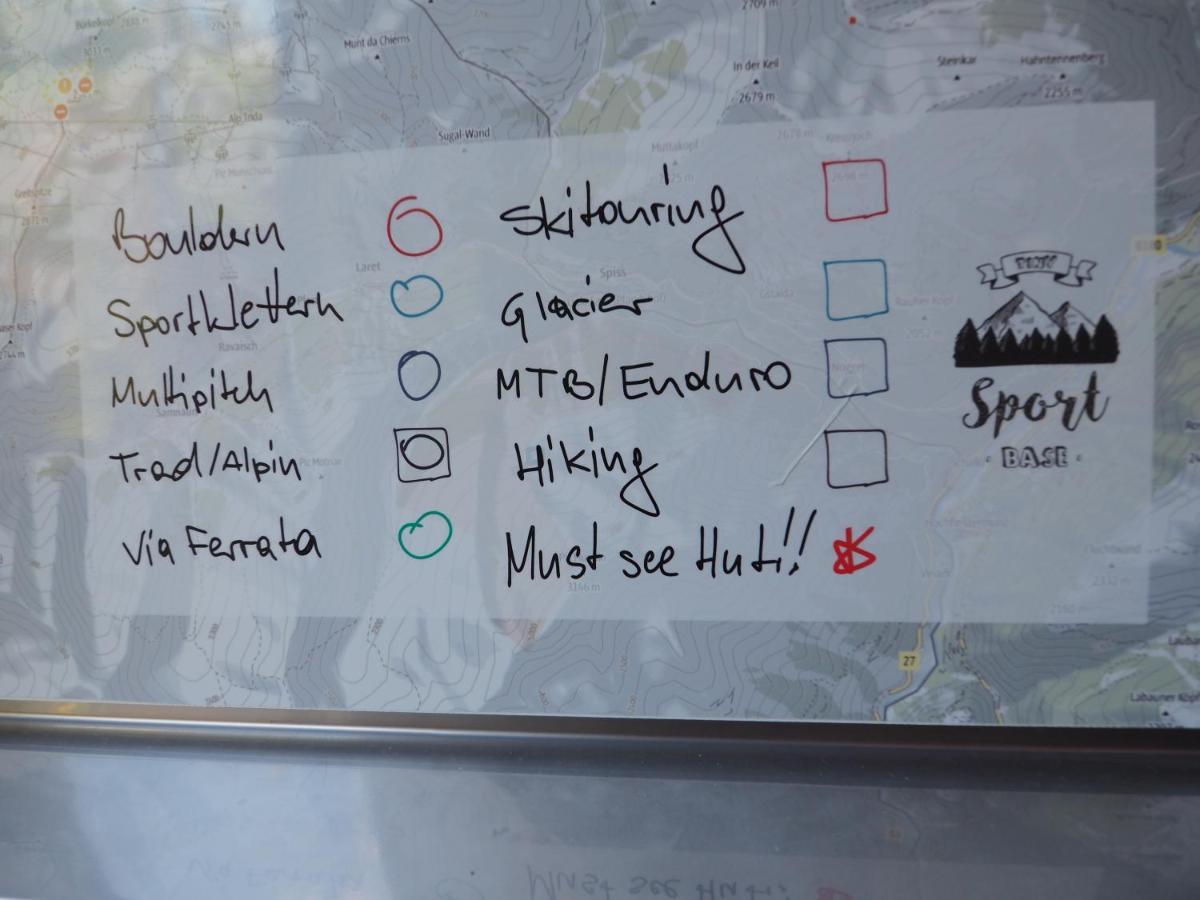 Birkelkopf 2832 m
2709 m
Munt da Chierns
In der Keil
2679 m
Steinkar
Hahntennenberg
2255 m
Alp Trida
Sugal-Wand
Muttakopf
Bouldern
Skitouring
Laret
Spiss
Sportklettern
Glacier
Ravaisch
Multipitch
MTB/Enduro
Trad/Alpin
Hiking
Via Ferrata
Must see Hut!!
3146 m
SPORT
BASE
27
2332 m